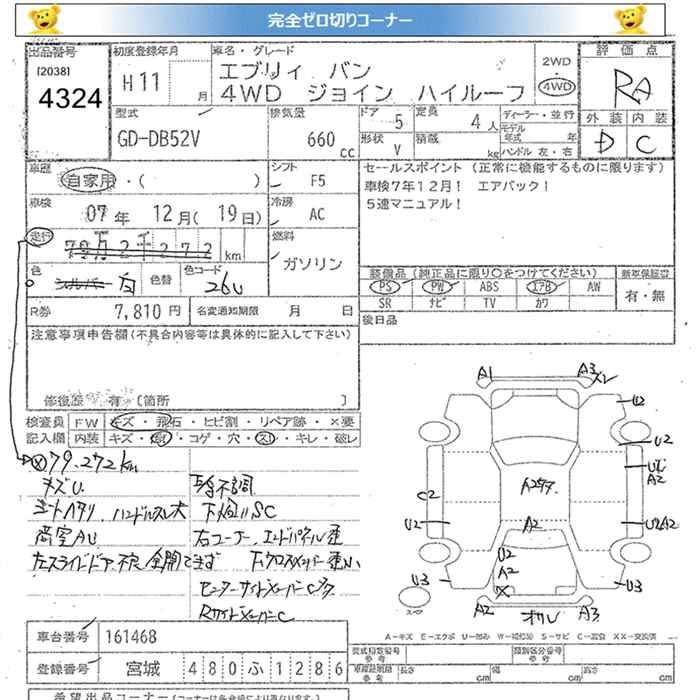 完全ゼロ切りコーナー
出品番号 初度登録年月 車名・グレード 評価点
[2038] 4324
H11 月
エブリィ バン
4WD ジョイン ハイルーフ
2WD
4WD
RA
外装 内装
D C
型式 排気量 ドア 5 定員 4人 ディーラー・並行
GD-DB52V 660cc 形状 V 積載 kg モデル年式 年
ハンドル 左・右
車歴 シフト セールスポイント(正常に機能するものに限ります)
自家用・( ) F5 車検7年12月! エアバック!
車検 07年 12月(19日) 冷房 AC 5速マニュアル!
走行 km 燃料 ガソリン
色 シルバー 白 色替 色コード 26U
装備品(純正品に限り○をつけてください) 新車保証書
PS PW ABS エアB AW 有・無
SR ナビ TV カワ
R券 7,810円 名変通知期限 月 日 後日品
注意事項申告欄(不具合内容等は具体的に記入して下さい)
修復歴 有(箇所 )
検査員 FW キズ・飛石・ヒビ割・リペア跡・×要
記入欄 内装 キズ・・コゲ・穴・スレ・キレ・破レ
79.272km
キズU
シートヘタリ ハンドルスレ大 下廻りSC
荷室AU 右コーナー、エンドパネル歪
左スライドドア不良 全開できます
RサイドメンバーC
A1 A3 ズレ
U2
U2
A2
C2
U2 U2A2
A2
U2
A2
X
U3 U3
A2 オサレ A3
スペア
A-キズ E-エクボ U-凹み S-サビ C-腐食 XX-交換済
車台番号 161468
登録番号 宮城 480ふ1286
型式指定番号 参考 類別区分番号 参考
長さ cm 幅 cm 高さ cm
希望出品コーナー